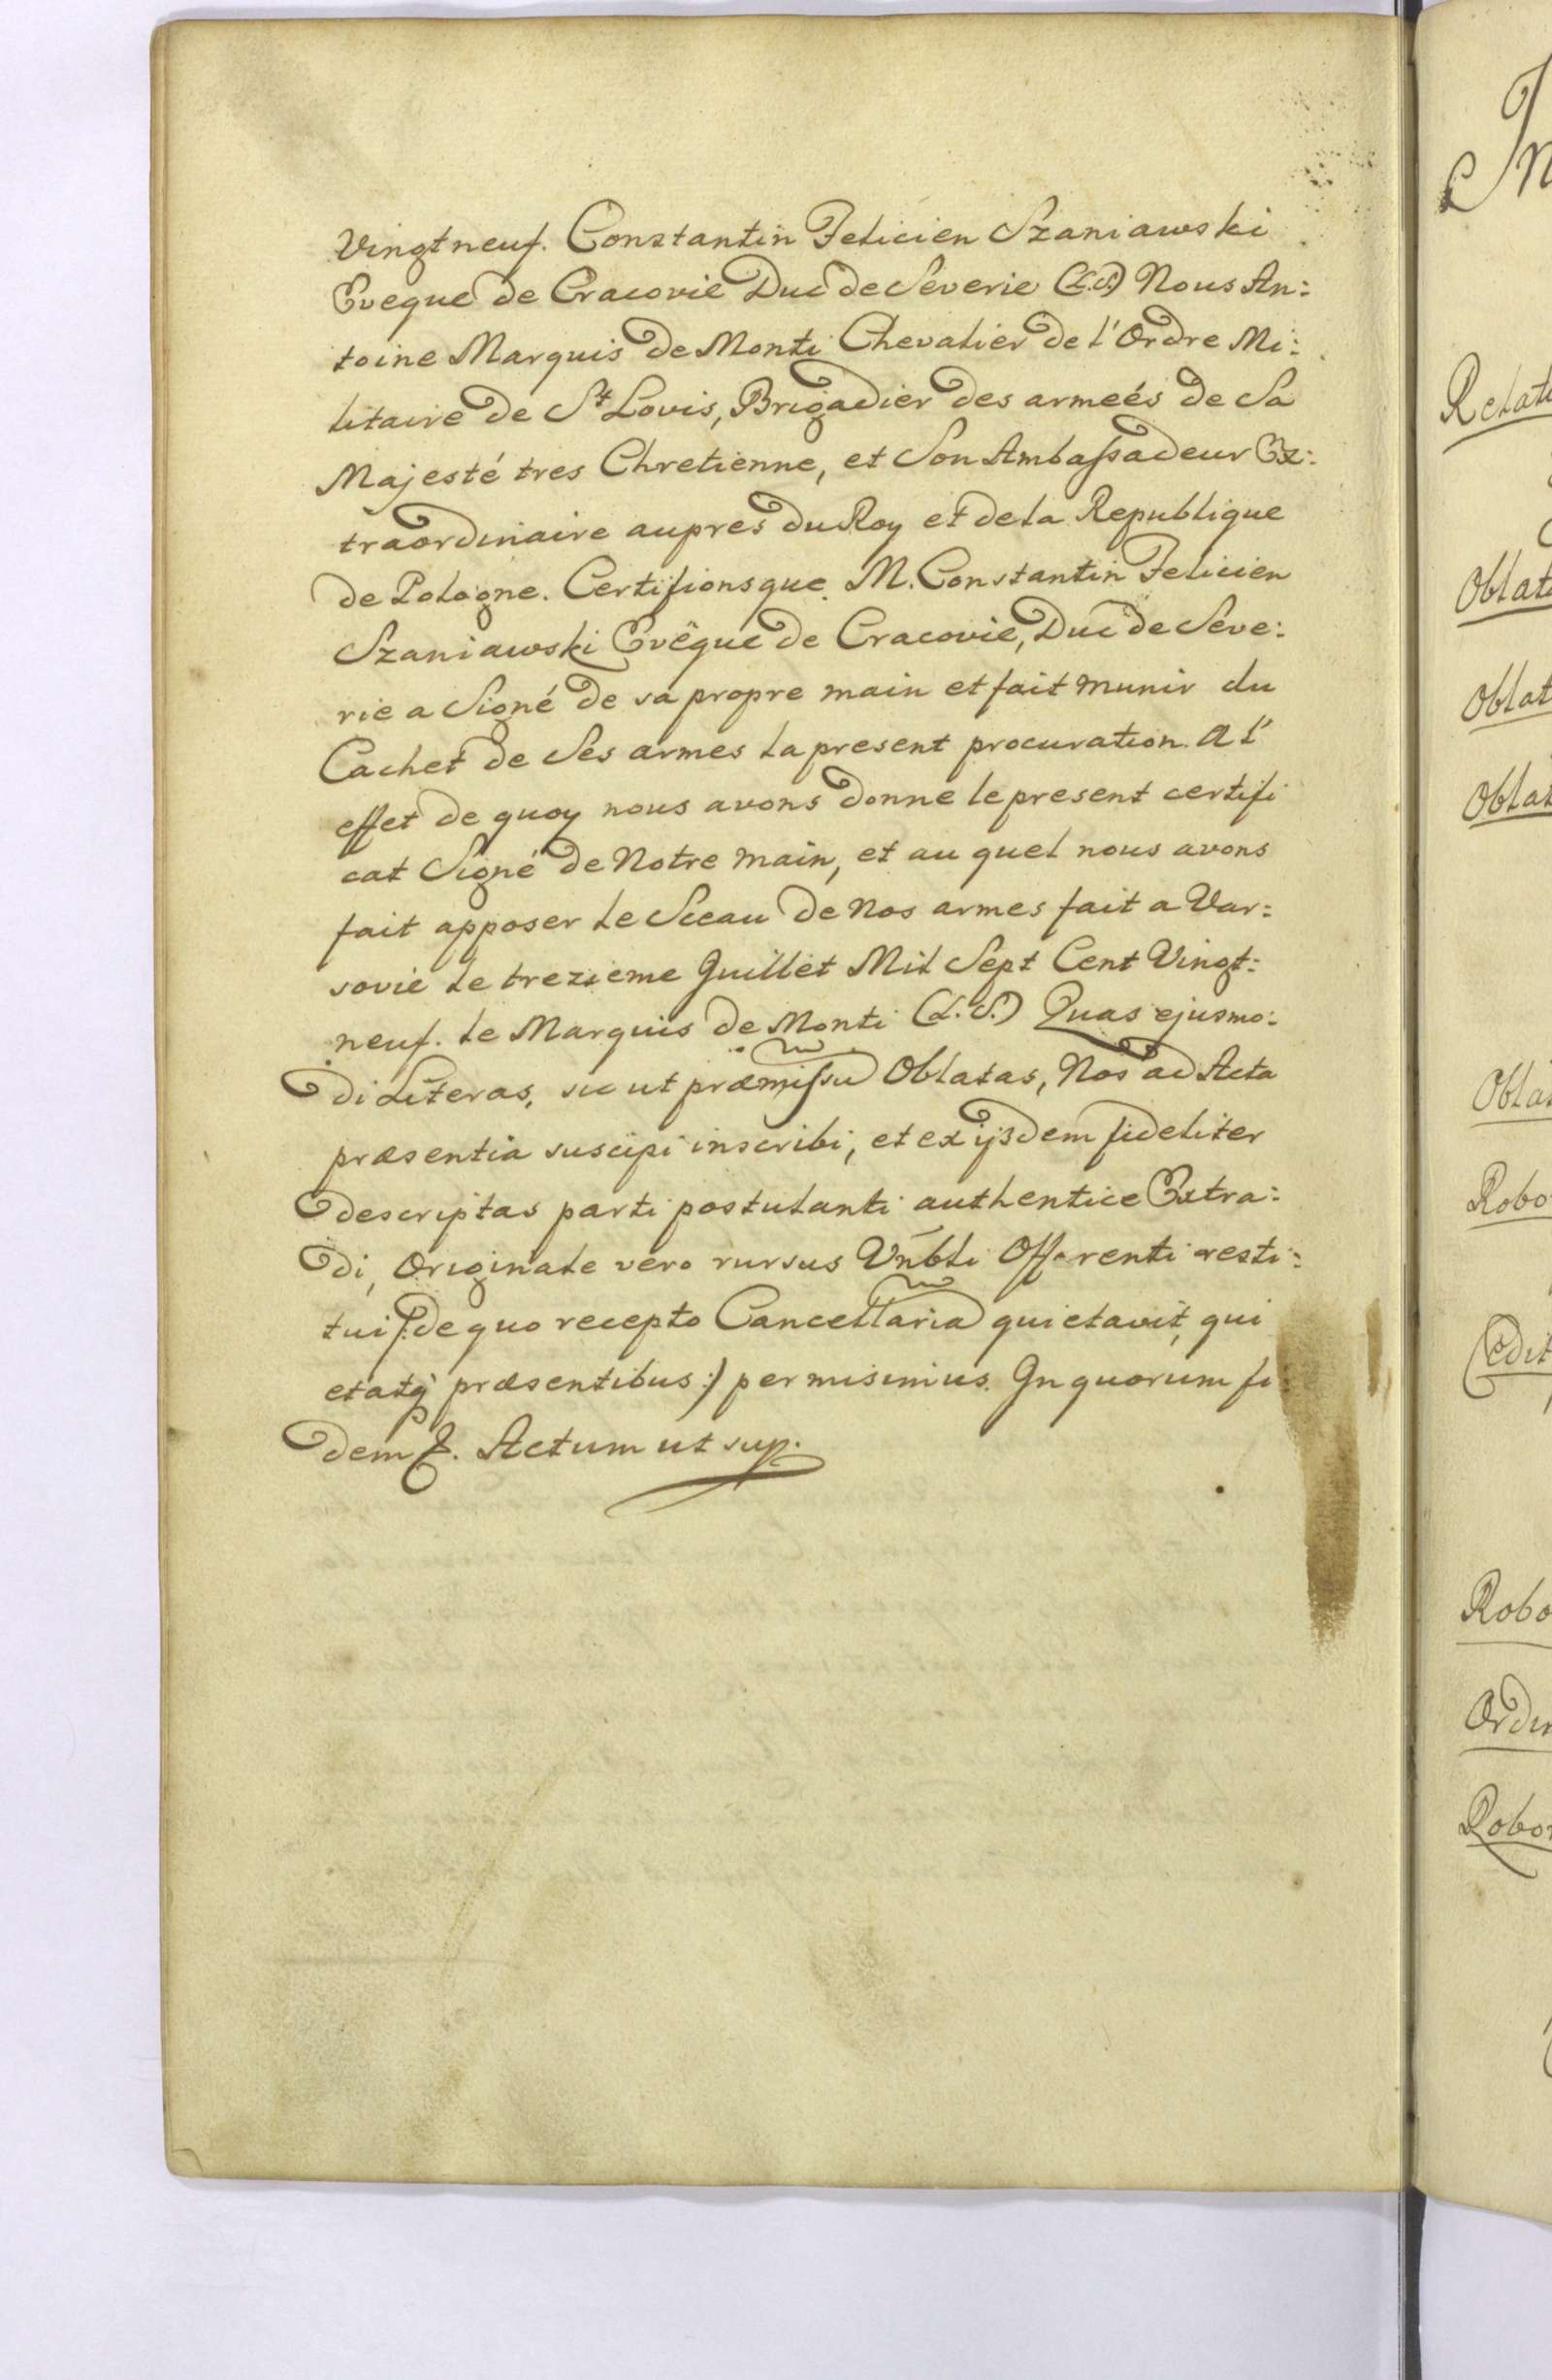 Vingt neuf. Constantin Felicien Szaniawski
Eveque de Cracovie Duc de Severie (L.S.) Nous An:
toine Marquis de Monti Chevalier de l'Ordre Mi:
litaire de St Lovis, Brigadier des armeés de Sa
Majesté tres Chretienne, et Son Ambaſsadeur Ex:
traordinaire aupres du Roy et de la Republique
de Pologne. Certifions que M. Constantin Felicien
Szaniawski Evêque de Cracovie, Duc de Seve:
rie a Signé de sa propre main et fait munir du
Cachet de Ses armes la present procuration. A l'
effet de quoy nous avons donné le present certifi
cat Signé de Notre main, et au quel nous avons
fait apposer le Sceau de Nos armes fait a Var:
sovie le trezieme Juillet Mil Sept Cent Vingt:
neuf. le Marquis de Monti (L.S.) Quas ejusmo:
di Literas, sic ut præmiſsu Oblatas, Nos ad Acta
præsentia suscipi inscribi, et ex ijsdem fideliter
descriptas parti postulanti authentice Extra:
di, Originale vero rursus Vnbli Offerenti resti:
tui /: de quo recepto Cancellaria quietavit, qui
etatq præsentibus :/ permisimus. In quorum fi
dem &. Actum ut sup.
In
Relati
Oblata
Oblat
Oblat
Oblat
Robo
Edit
Robo
Ordin
Robor